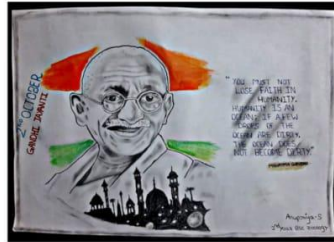 2nd OCTOBER
GANDHI JAYANTI
"YOU MUST NOT
LOSE FAITH IN
HUMANITY.
HUMANITY IS AN
OCEAN; IF A FEW
DROPS OF THE
OCEAN ARE DIRTY,
THE OCEAN DOES
NOT BECOME DIRTY."